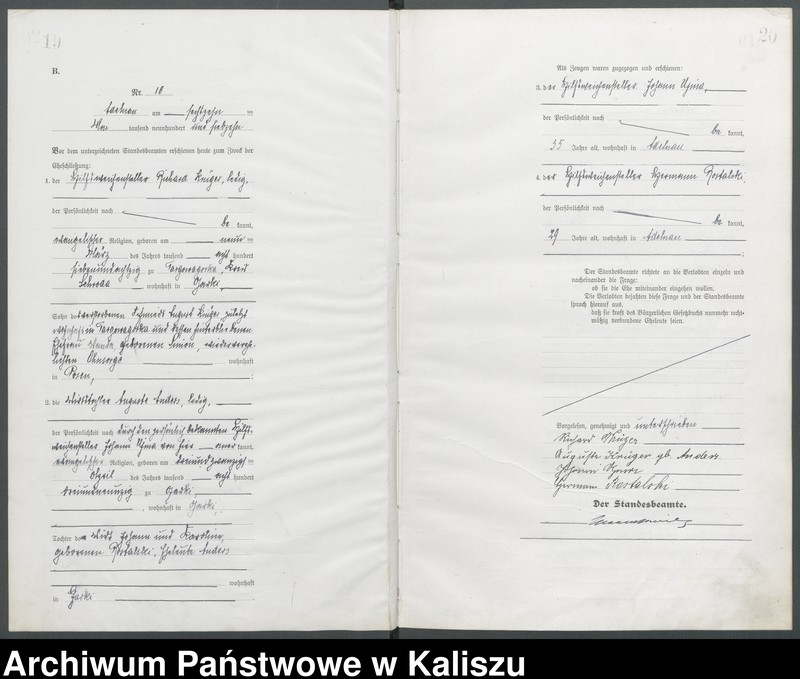 19
B.
Nr. 10
Adelnau am sechzehn ten
Mai tausend neunhundert und siebzehn
Vor dem unterzeichneten Standesbeamten erschienen heute zum Zweck der
Eheschließung:
1. der Hilfsweichensteller Richard Krüger, ledig,
der Persönlichkeit nach
be kannt,
evangelischer Religion, geboren am neun ten
März des Jahres tausend acht hundert
siebenundachtzig zu Targowagorka, Kreis
Schroda, wohnhaft in Garki,
Sohn des verstorbenen Schmieds August Krüger, zuletzt
wohnhaft in Targowagorka und dessen hinterbliebenen
Ehefrau Wanda geborenen Simon, wiederverehe-
lichten wohnhaft
in Posen, ;
2. die Wirtstochter Auguste Anders, ledig,
der Persönlichkeit nach durch den persönlich bekannten Hilfs-
weichensteller Johann von hier anerkannt,
evangelischer Religion, geboren am dreiundzwanzigs ten
April des Jahres tausend acht hundert
dreiundneunzig zu Garki
, wohnhaft in Garki,
Tochter der Wirt Johann und Karoline,
geborenen Rostalski, Eheleute Anders
wohnhaft
in Garki
20
Als Zeugen waren zugezogen und erschienen:
3. der Hilfsweichensteller Johann
der Persönlichkeit nach
be kannt,
35 Jahre alt, wohnhaft in Adelnau
4. der Hilfsweichensteller Hermann Rostalski,
der Persönlichkeit nach
be kannt,
29 Jahre alt, wohnhaft in Adelnau
;
Der Standesbeamte richtete an die Verlobten einzeln und
nacheinander die Frage:
ob sie die Ehe miteinander eingehen wollen.
Die Verlobten bejahten diese Frage und der Standesbeamte
sprach hierauf aus,
daß sie kraft des Bürgerlichen Gesetzbuchs nunmehr recht-
mäßig verbundene Eheleute seien.
Vorgelesen, genehmigt und unterschrieben
Richard Krüger
Auguste Krüger gb. Anders
Johann
Hermann Rostalski
Der Standesbeamte.
Archiwum Państwowe w Kaliszu